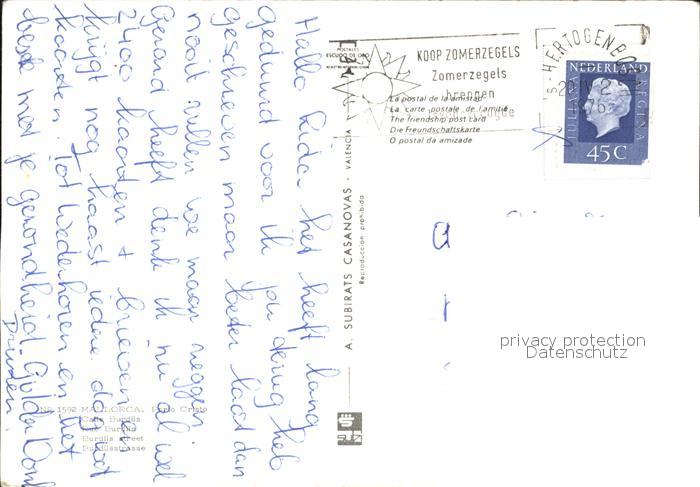 Hallo Rida het heeft lang
geduurd voor ik jou terug heb
geschreven maar beter laat dan
nooit zullen we maar zeggen
Gerard heeft denk ik nu al wel
2400 kaarten + brieven en
krijgt nog haast iedere dag wat
kaarten. Tot wederhoren en het
beste met je gezondheid
NR 1592 MALLORCA. Porto Cristo
Calle Burdils
Rue Burdils
Burdils Street
Burdilsstrasse
POSTALES
ESCUDO DE ORO
A. SUBIRATS CASANOVAS - VALENCIA
Reproduccion prohibida
La postal de la amistad
La carte postale de l'amitié
The friendship post card
Die Freundschaftskarte
O postal da amizade
KOOP ZOMERZEGELS
Zomerzegels
brengen
'S-HERTOGENBO
NEDERLAND
JULIANA REGINA
45C
privacy protection
Datenschutz